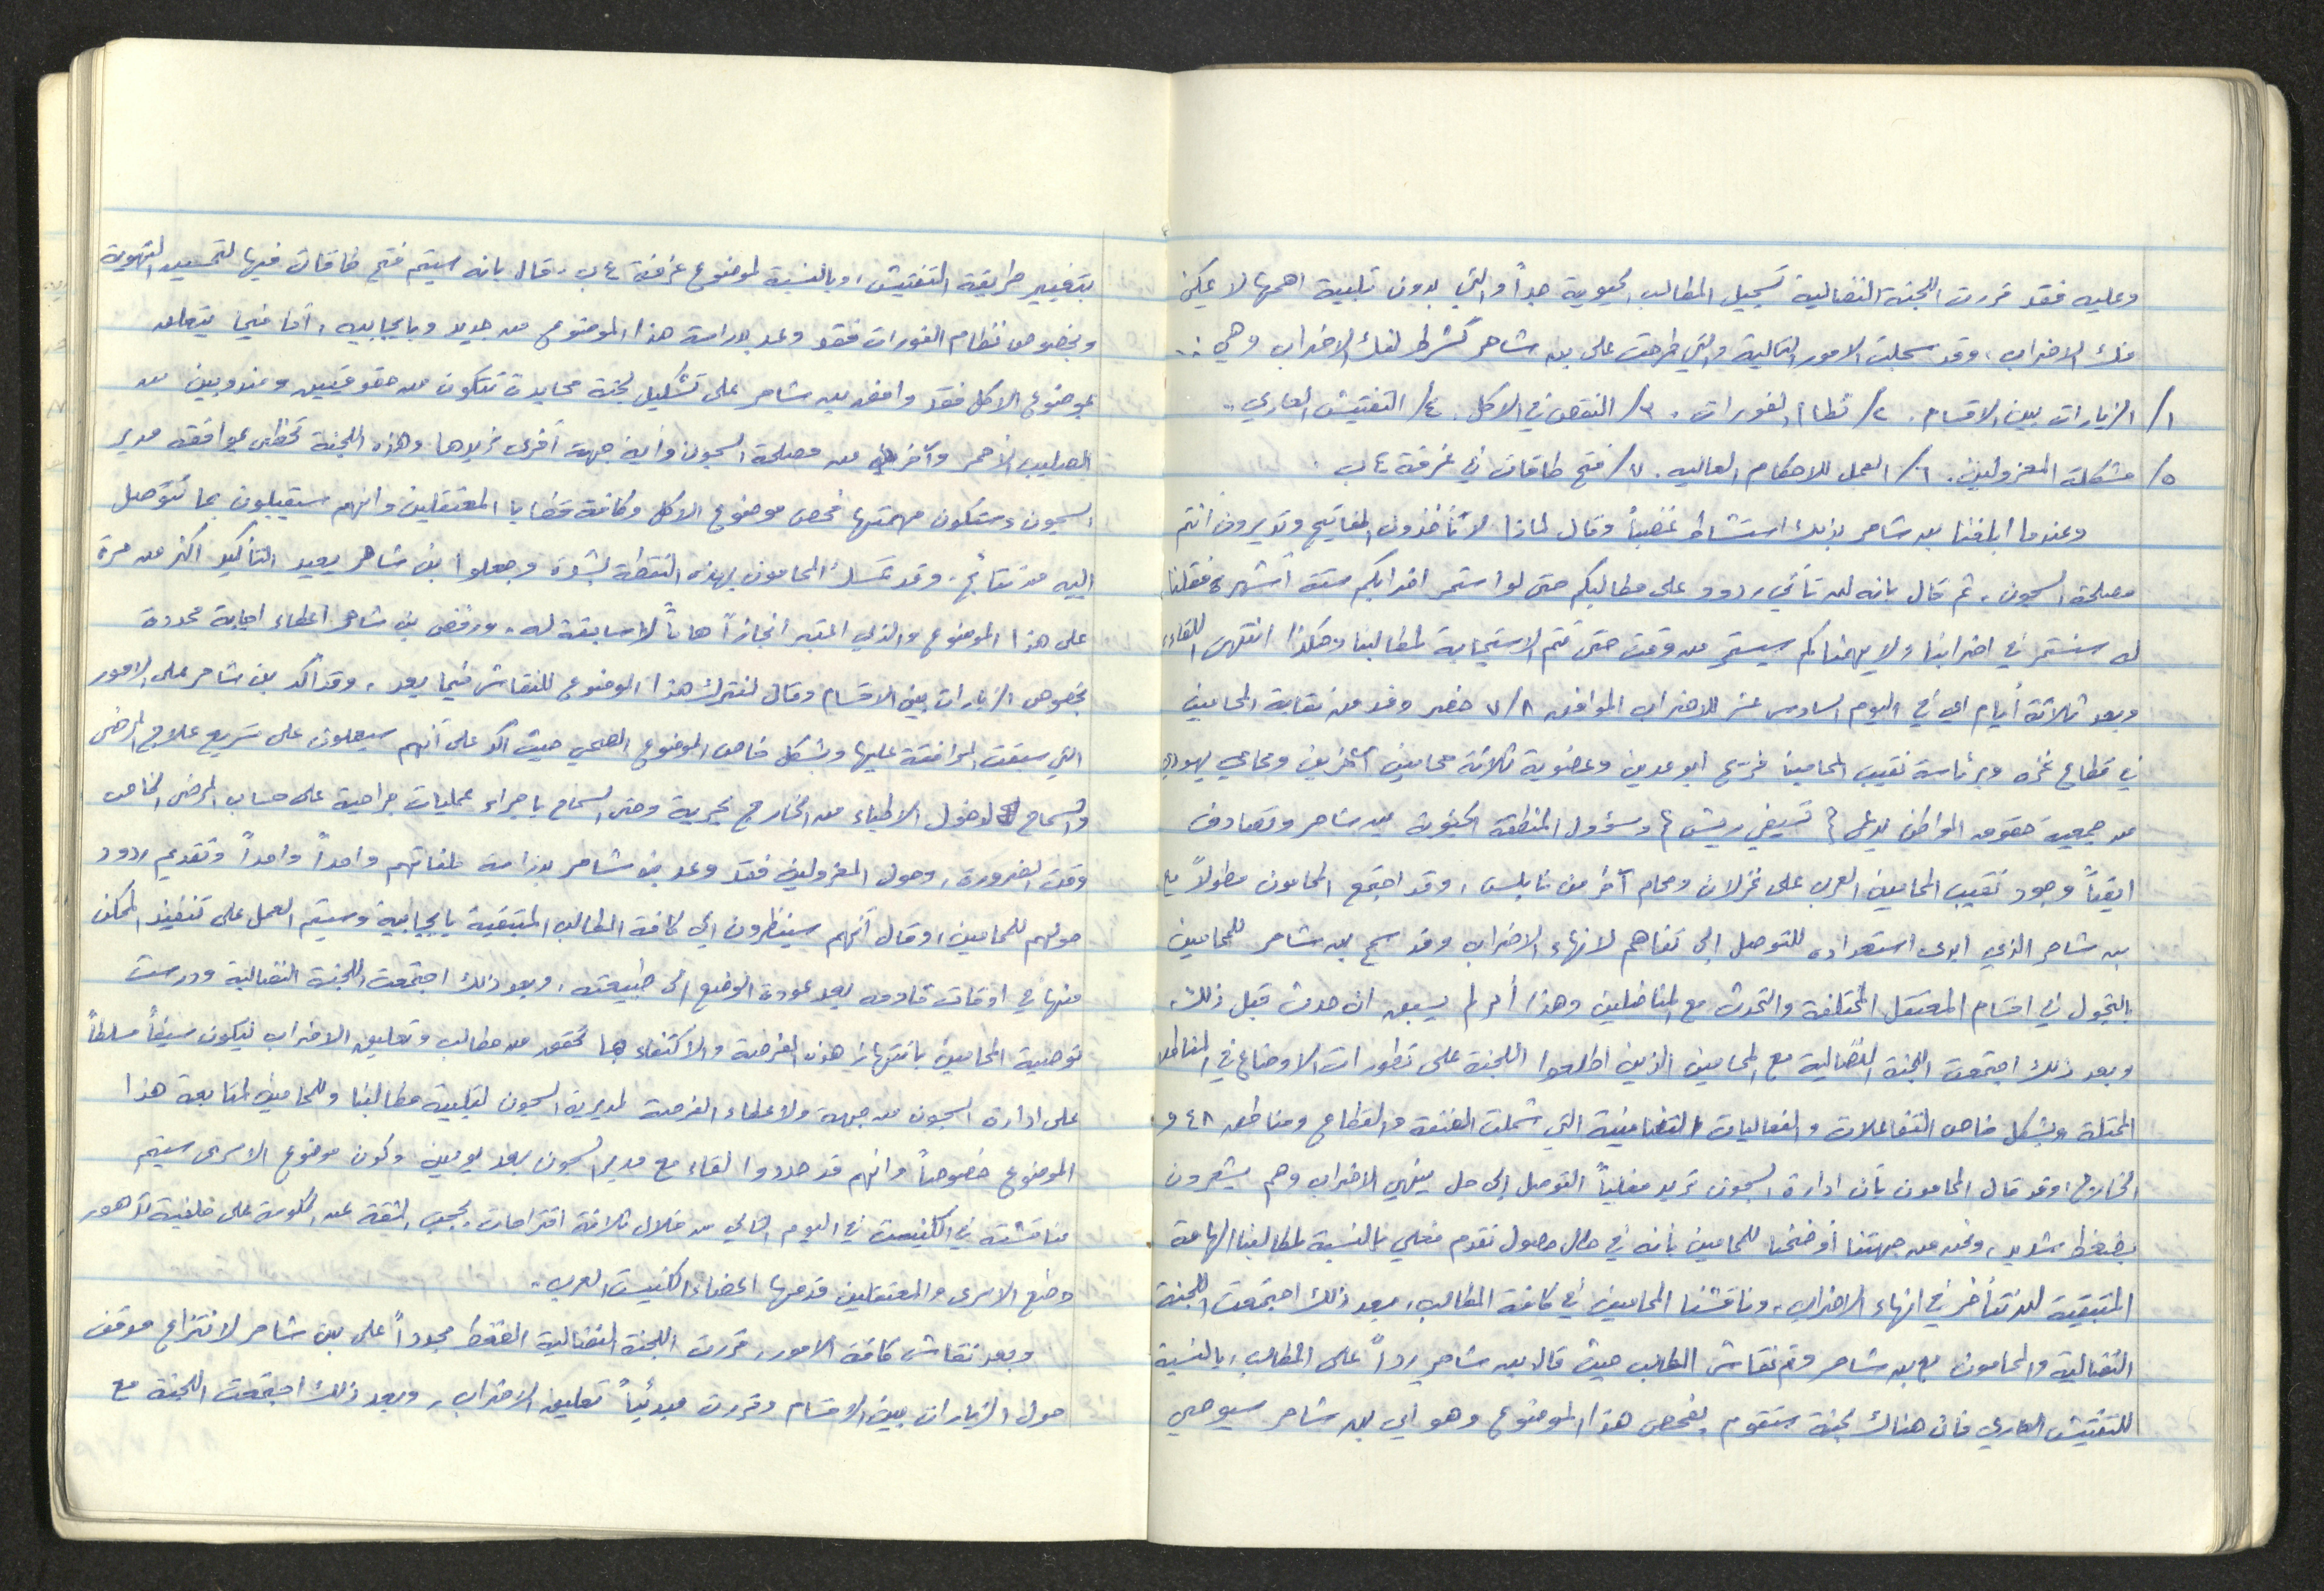 وعليه فقد قررت اللجنة النضالية تسجيل المطالب الحيوية جداً والتي بدون تلبية اهمها لا يمكن
فك الاضراب، وقد سجلت الامور التالية والتي طرحت على بن شاحر كشرط لفك الاضراب وهي :.
١/ الزيارات بين الاقسام. ٢/ نظام الفورات. ٣/ النقص في الاكل. ٤/ التفتيش العاري..
٥/ مشكلة المعزولين. ٦/ العمل للاحكام العاليه. ٧/ فتح طاقات في غرفة ٤ ب.
وعندما ابلغنا بن شاحر بذلك استشاط غضباً وقال لماذا لا تأخذون المفاتيح وتديرون أنتم
مصلحة السجون، ثم قال بانه لن تأتي ردود على مطالبكم حتى لو استمر اضرابكم ستة أشهر، فقلنا
له سنستمر في اضرابنا ولا يهمنا كم سيستمر من وقت حتى تتم الاستجابة لمطالبنا وهكذا انتهى اللقاء،
وبعد ثلاثة أيام اي في اليوم السادس عشر للاضراب الموافق ٧/٨ حضر وفد من نقابة المحامين
في قطاع غزه وبرئاسة نقيب المحامين فريح أبو مدين وعضوية ثلاثة محامين آخرين ومحامي يهودي
من جمعية حقوق المواطن يدعى { تسيفي ريش } ومسؤول المنطقة الجنوبة بن شاحر وتصادف
ايضاً وجود نقيب المحامين العرب علي غزلان ومحام آخر من نابلس، وقد اجتمع المحامون مطولاً مع
بن شاحر الذي ابدى استعداده للتوصل إلى تفاهم لانهاء الاضراب وقد سمح بن شاحر للمحامين
بالتجول في اقسام المعتقل المختلفة والتحدث مع المناضلين وهذا أمر لم يسبق ان حدث قبل ذلك،
وبعد ذلك اجتمعت اللجنة النضالية مع المحامين الذين اطلعوا اللجنة على تطورات الاوضاع في المناطق
المحتلة وبشكل خاص التفاعلات والفعاليات التضامنية التي شملت الضفة والقطاع ومناطق ٤٨ و
الخارج، وقد قال المحامون بأن ادارة السجون تريد فعلياً التوصل إلى حل ينهي الاضراب وهم يشعرون
بضغط شديد، ونحن من جهتنا أوضحنا للمحامين بانه في حال حصول تقدم فعلي بالنسبة لمطالبنا الهامة
المتبقية لن نتأخر في انهاء الاضراب، وناقشنا المحامين في كافة المطالب، بعد ذلك اجتمعت اللجنة
النضالية والمحامون مع بن شاحر وتم نقاش المطالب حيث قال بن شاحر رداً على المطالب، بالنسبة
للتفتيش العاري فان هناك لجنة ستقوم بفحص هذا الموضوع وهو اي بن شاحر سيوصي
بتغيير طريقة التفتيش، وبالنسبة لموضوع غرفة ٤ ب، قال بانه سيتم فتح طاقات فيها لتحسين التهوية
وبخصوص نظام الفورات فقد وعد بدراسة هذا الموضوع من جديد وبايجابيه، أما فيما يتعلق
بموضوع الاكل فقد وافق بن شاحر على تشكيل لجنة محايدة تتكون من حقوقيين ومندوبين من
الصليب الأحمر وآخرين من مصلحة السجون وأية جهة أخرى نريدها وهذه اللجنة تحظى بموافقة مدير
السجون وستكون مهمتها فحص موضوع الاكل وكافة قضايا المعتقلين وانهم سيقبلون بما تتوصل
اليه من نتائج، وقد تمسك المحامون بهذه النقطة بشدة وجعلوا بن شاحر يعيد التأكيد اكثر من مرة
على هذا الموضوع والذي اعتبر انجازاً هاماً لا سابقة له، ورفض بن شاحر اعطاء اجابة محددة
بخصوص الزيارات بين الاقسام وقال لنترك هذا الموضوع للنقاش فيما بعد، وقد اكد بن شاحر على الامور
التي سبقت الموافقة عليها وبشكل خاص الموضوع الصحي حيث اكد على أنهم سيعملون على تسريع علاج المرضى
والسماح لدخول الاطباء من الخارج بحرية وحتى السماح باجراء عمليات جراحية على حساب المرضى الخاص
وقت الضرورة، وحول المعزولين فقد وعد بن شاحر بدراسة ملفاتهم واحداً واحداً وتقديم ردود
حولهم للمحامين، وقال أنهم سينظرون الى كافة المطالب المتبقية بايجابية وسيتم العمل على تنفيذ الممكن
منها في اوقات قادمه بعد عودة الوضع الى طبيعته، وبعد ذلك اجتمعت اللجنة النضالية ودرست
توصية المحامين بانتهاز هذه الفرصة والاكتفاء بما تحقق من مطالب وتعليق الاضراب ليكون سيفاً مسلطاً
على ادارة السجون من جهة ولاعطاء الفرصة لمديرية السجون لتلبية مطالبنا وللمحامين لمتابعة هذا
الموضوع خصوصاً وانهم قد حددوا لقاء مع مدير السجون بعد يومين وكون موضوع الاسرى سيتم
مناقشته في الكنيست في اليوم التالي من خلال ثلاثة اقتراحات بحجب الثقة عن الحكومة على خلفية تدهور
وضع الاسرى والمعتقلين قدمها اعضاء الكنيست العرب..
وبعد نقاش كافة الامور، قررت اللجنة النضالية الضغط مجدداً على بن شاحر لانتزاع موقف
حول الزيارات بين الاقسام وقررت مبدئياً تعليق الاضراب، وبعد ذلك اجتمعت اللجنة مع